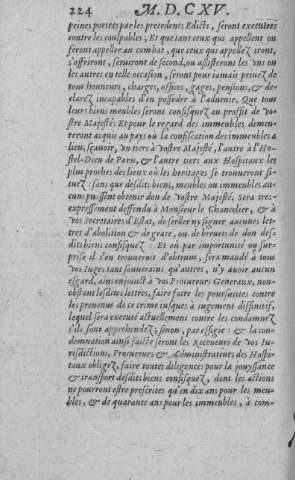 224 M. D. C X V.
peines portées par les precedents Edicts, seront executées
contre les coulpables; Et que tant ceux qui appellent ou
feront appeller au combat, que ceux qui appellez iront,
s'offriront, seruiront de second, ou assisteront les vns ou
les autres en telle occasion, seront pour iamais priuez de
tous honneurs, charges, offices, gages, pensions, & de-
clarez incapables d'en posseder à l'aduenir. Que tous
leurs biens meubles seront confisquez au profit de vo-
stre Majesté: Et pour le regard des immeubles demeu-
reront acquis au pays où la confiscation des immeubles a
lieu, sçauoir, vn tiers à vostre Majesté, l'autre à l'Ho-
stel-Dieu de Paris, & l'autre tiers aux Hospitaux les
plus proches des lieux où les heritages se trouueront si-
tuez: sans que desdits biens, meubles ou immeubles au-
cuns pussent obtenir don de vostre Majesté. Sera tres-
expressement deffendu à Monsieur le Chancelier, & à
vos Secretaires d'Estat, de seeller ny signer aucunes let-
tres d'abolition & de grace, ou de breuets de don des-
dits biens confisquez: Et où par importunité ou sur-
prise il s'en trouueroit d'obtenus, sera mandé à tous
vos Iuges tant souuerains qu'autres, n'y auoir aucun
esgard, ains enjoinct à vos Procureurs Generaux, non-
obstant lesdites lettres, faire faire les poursuittes contre
les preuenus de ce crime iusques à iugement diffinitif,
lequel sera executé actuellement contre les condamnez
s'ils sont apprehendez, sinon, par effigie: & la con-
demnation ainsi faicte seront les Receueurs de vos Iu-
risdictions, Procureurs & Administrateurs des Hospi-
taux obligez, faire toutes diligences pour la jouyssance
& transport desdits biens confisquez, dont les actions
ne pourront estre prescrites qu'en dix ans pour les meu-
bles, & de quarante ans pour les immeubles, à com-